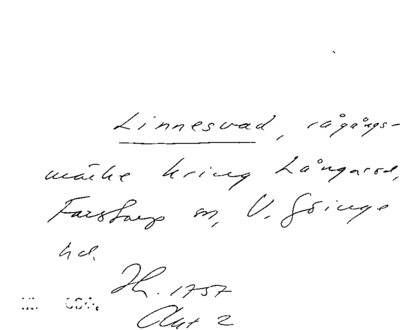 Linnesvad, rågångs-
märke kring Långaröd,
Farstorp sn, V. Göinge
hd.
Jh. 1757
Akt 2